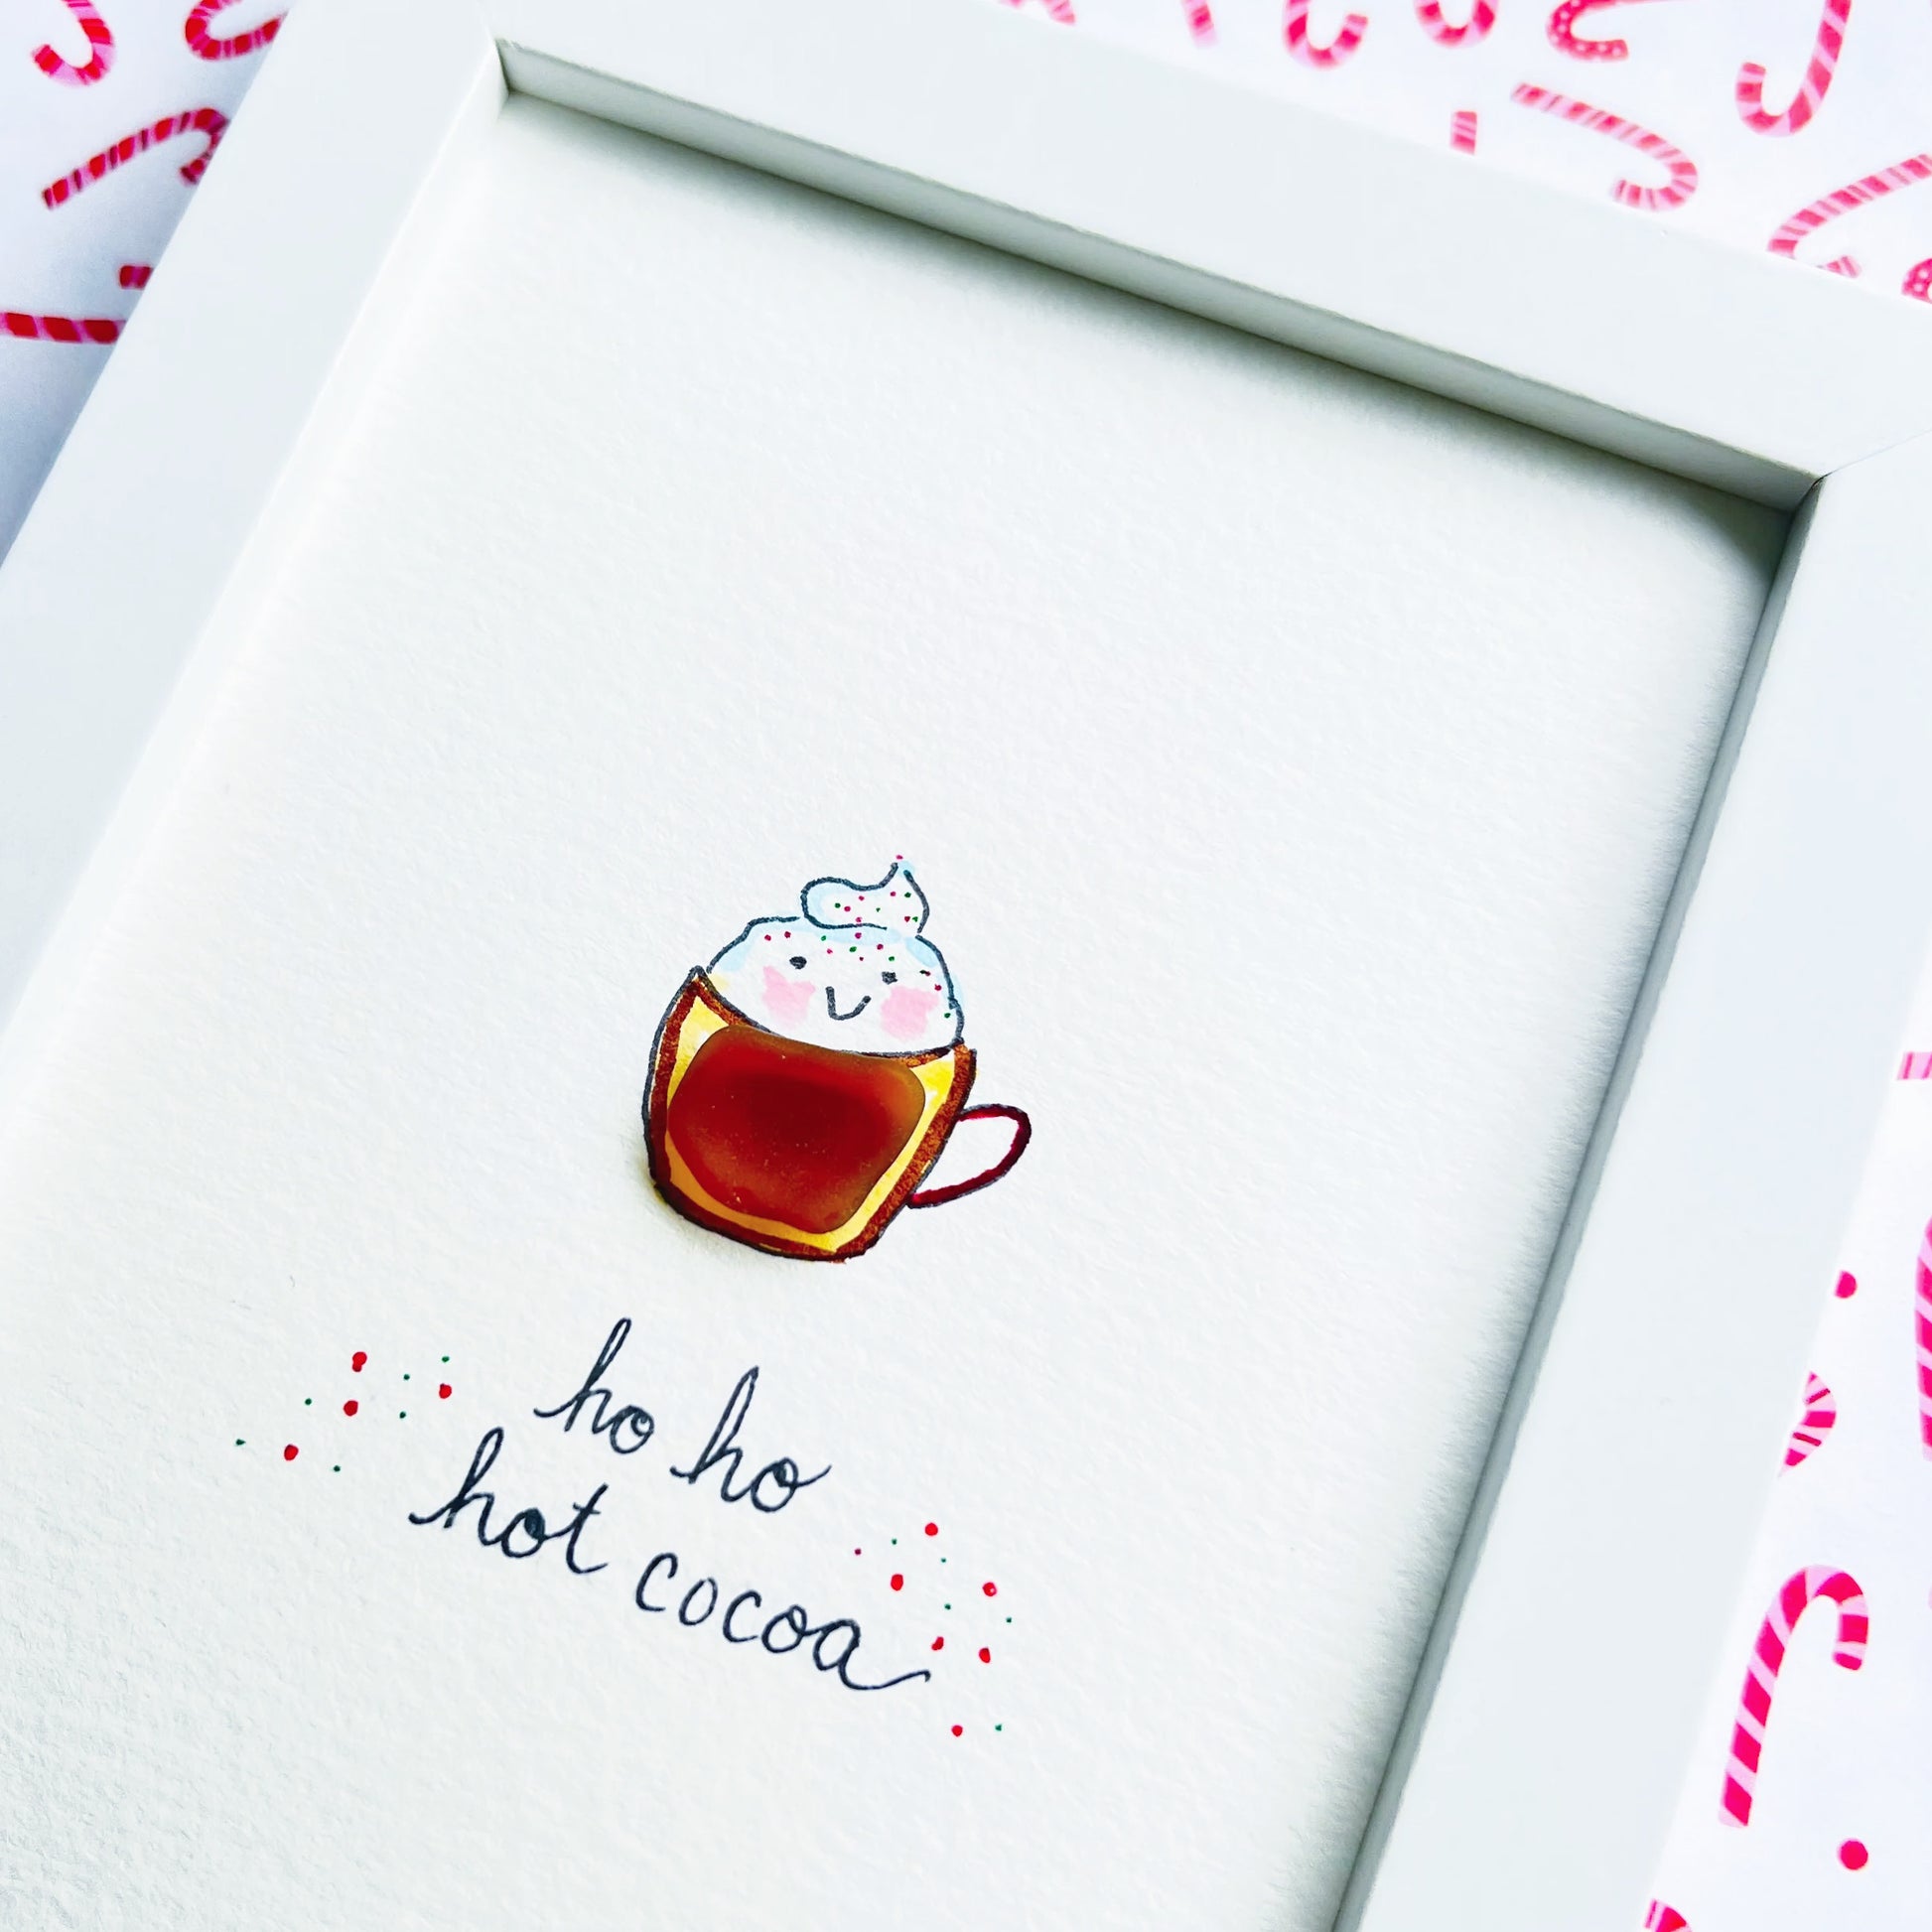 ho ho
hot cocoa